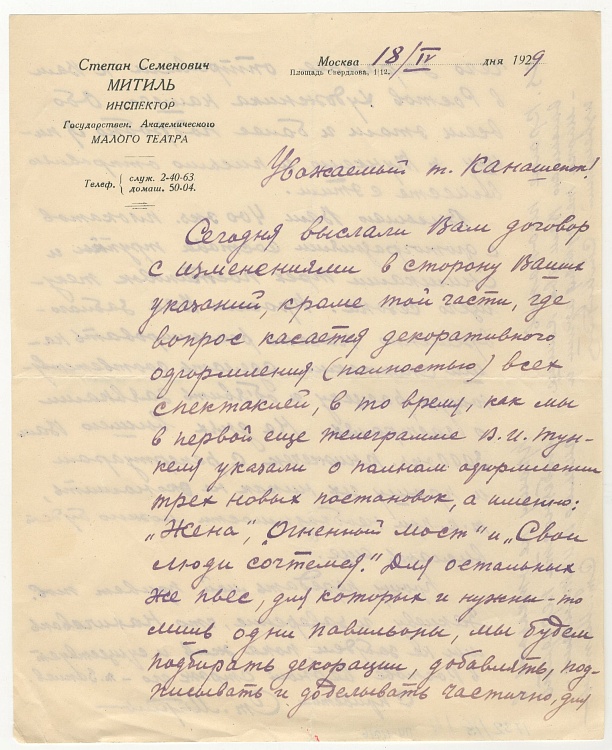 Степан Семенович
МИТИЛЬ
ИНСПЕКТОР
Государствен. Академического
МАЛОГО ТЕАТРА
Телеф. { служ. 2-40-63
домаш. 50-04.
Москва 18/IV дня 1929
Площадь Свердлова, 1|12.
Уважаемый т. Канашенок!
Сегодня выслали Вам договор
с изменениями в сторону Ваших
указаний, кроме той части, где
вопрос касается декоративного
оформления (полностью) всех
спектаклей, в то время, как мы
в первой еще телеграмме В. И. Тун-
келя указали о полном оформлении
трех новых постановок, а именно:
„Жена", „Огненный мост" и „Свои
люди сочтемся." Для остальных
же пьес, для которых и нужны-то
лишь одни павильоны, мы будем
подбирать декорации, добавлять, под-
писывать и доделывать частично, для